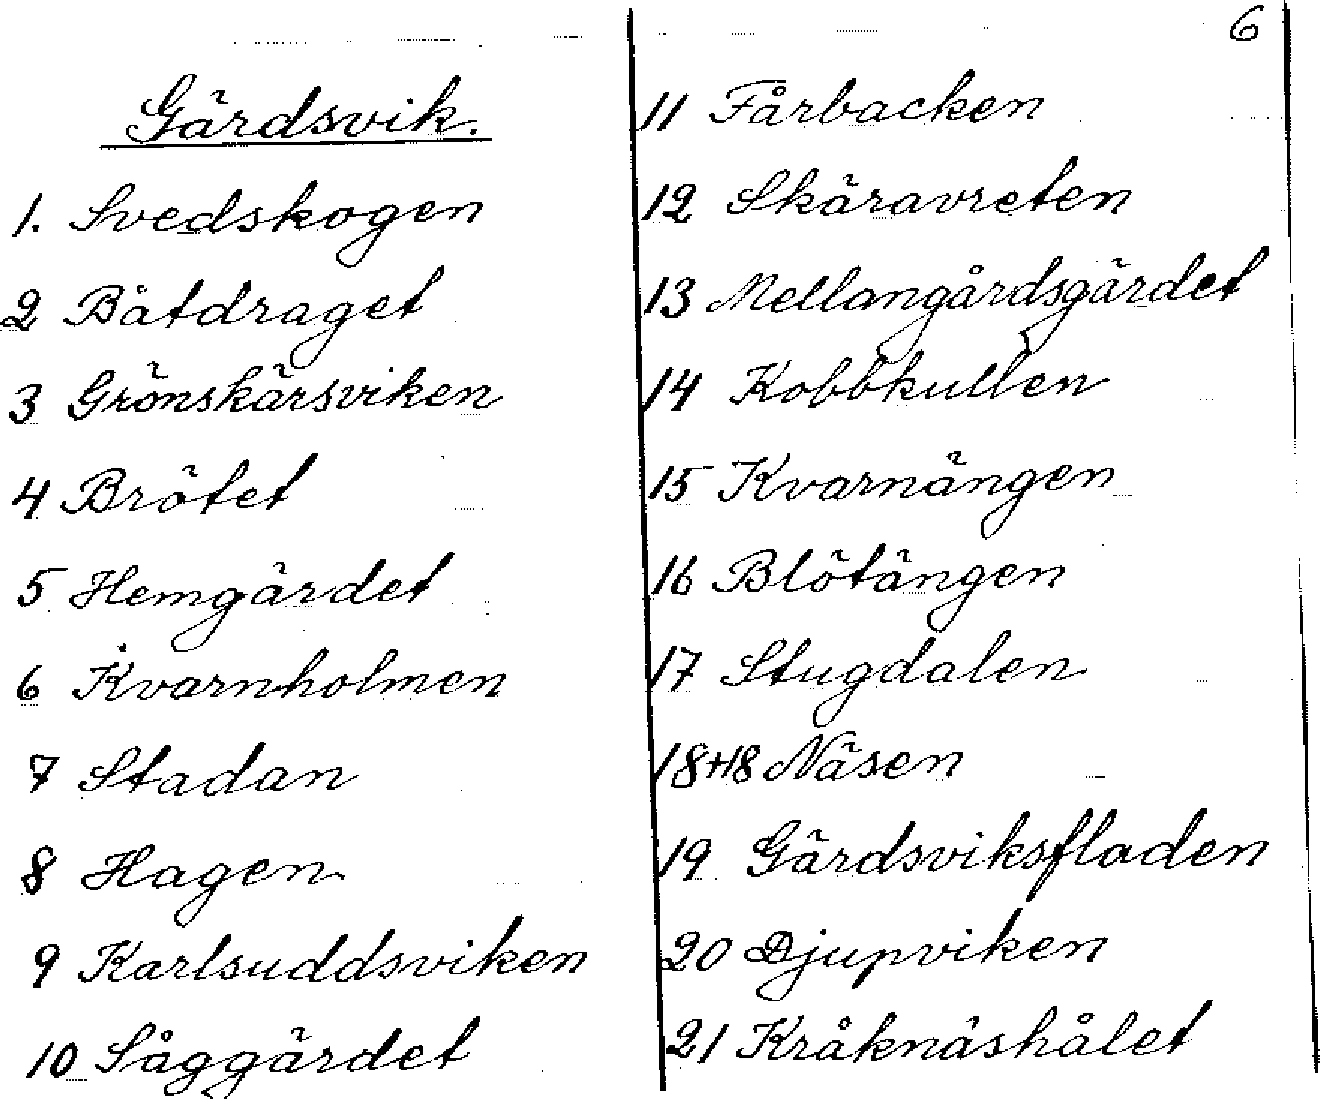 6
Gärdsvik.
1. Svedskogen
2 Båtdraget
3 Grönskärsviken
4 Brötet
5 Hemgärdet
6 Kvarnholmen
7 Stadan
8 Hagen
9 Karlsuddsviken
10 Såggärdet
11 Fårbacken
12 Skäravreten
13 Mellangårdsgärdet
14 Kobbkullen
15 Kvarnängen
16 Blötängen
17 Stugdalen
18+18 Näsen
19 Gärdsviksfladen
20 Djupviken
21 Kråknäshålet